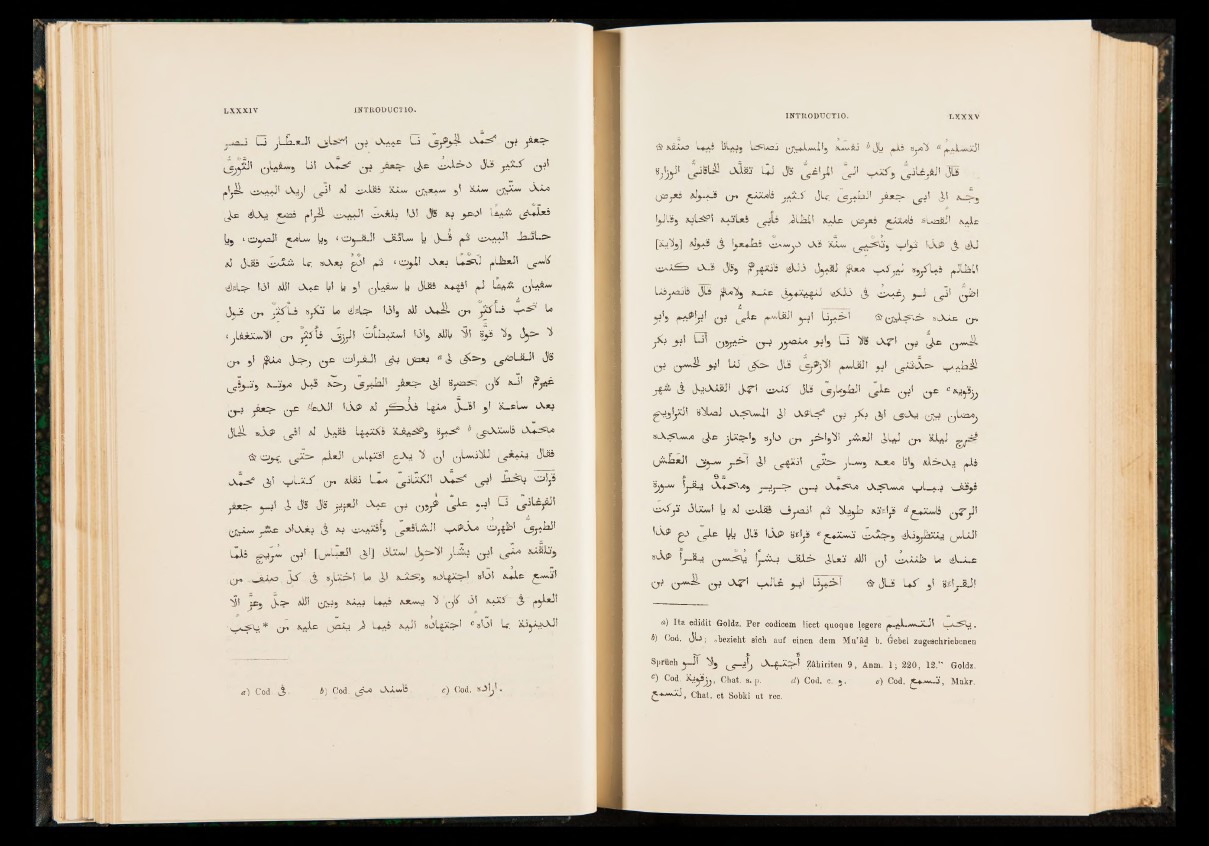 LXXXIV INTRODUCTIO.
جعفر بن محمّد الجوهرىّ نا عبيد بن اسحاق العطّار نا نصر
ابن كثير قال دخلتُ على جعفر بن محمّد انا وسفيان الثَّوْرىّ
منذ ستّين سنة او سبعين سنة فقلت له انّى اريد البيت الحرام
فعلّمنى شيئًا ادعو به قال اذا بلغتَ البيت الحرام فضع يدك على
حائط البيت ثم قُل يا سائق القوت، ويا سامع الصوت، ويا
كاسى العظام لَحْمًا بعد الموت، ثم ادْعُ بعده بما شئتَ فقال له
سفيان شيئًا لم افهمه فقال يا سفيان او يا ابا عبد الله اذا جاءك
ما تُحبّ فأَكثِرْ من الحمد لله واذا جاءك ما تكره فأَكثِرْ من قول
لا حول ولا قوّة الّا بالله واذا استبطأتَ الرزق فأَكثِرْ من الاستغفار،
قال القاضى وحكى لى a بعض بنى الفرات عن رجل منهم او من
غيرهم انّه كان بحضرة ابى جعفر الطبرىّ رحّه قبل موته وتوفّى
بعد ساعة او اقلّ منها فذُكر له هذا الدعاء عن جعفر بن
محمّد فاستدعى b محبرة وصحيفة فكتبها فقيل له افى هذه الحال
فقال ينبغى للانسان ان لا يدع اقتباس العلم حتّى يموت ۞
قرأت بخطّ ابى محمّد الكتّانىّ ممّا نقله من كتاب ابى محمّد
الفرغانىّ نا ابو علىّ هٰرون بن عبد العزيز قال قال لى ابو جعفر
الطبرىّ اظهرتُ مذهب الشافعىّ وأفتيت به فى بغداد عشر سنين
وتلقّنه منّى ابن بشّار الاحول استاذ [ابى العبّاس] ابن سُرَيج فلمّا
اتّسع علمه اداه اجتهاده وبحثه الى ما اختاره فى كلّ صنف من
العلوم فى كتبه اذ كان لا يسعه فيما بينه وبين الله جلّ وعزّ الّا
الدينونة بما اداه c اجتهاده اليه فيما لم ينصّ عليه من *يجب
a) Cod. فى. b) Cod. فاسند منى c) Cod. اراده.
INTRODUCTIO. LXXXV
التسليم a لامره فلم يأل b نفسَهُ والمسلمين نصحًا وبيانًا فيما صنّفه ۞
قال الفرغانىّ وكتب الىّ المراغىّ قال لمّا تقلّد الخاقانىّ الوزارة
وجّه الى ابى جعفر الطبرىّ بمال كثير فامتنع من قبوله فعرض
عليه القضاء فامتنع فعرض عليه المظالم فأبى فعاتبه اصحابه وقالوا
لك فى هذا ثواب وتُحْيى سُنّة قد درستْ وطمعوا فى قبوله [ولاية]
المظالم فباكروه ليركب معهم لقبول ذلك فانتهرهم وقال قد كنت
اظنّ انّى لو رغبتُ فى ذلك لنهيتمونى عنه ولامهم قال فانصرفنا
من عنده خجلين ۞ اخبرنا ابو القاسم علىّ بن ابراهيم وابو
الحسن علىّ بن احمد قالا نا وابو منصور بن خيرون أنا ابو بكر
الخطيب حدّثنى ابو القاسم الازهرىّ قال حكى لنا ابو الحسن بن
رزقويه c عن ابن علىّ الطومارىّ قال كنت احمل القنديل فى شهر
رمضان بين يدى ابى بكر بن مجاهد الى المسجد لصلاة التراويح
فخرج ليلة من ليالى العشر الاواخر من داره واجتاز على مسجده
فلم يدخله وانا معه وسار حتّى انتهى الى آخر سوق العَطَش
فوقف بباب مسجد محمّد بن جرير ومحمّد يقرأ سورة
الرحمن فاستمع d قراءته طويلا ثم انصرف فقلت له يا استاذ تركتَ
الناس ينتظرونك وجئتَ تستمع e قراءة هذا قال يابا علىّ دع هذا
عنك ما ظننتُ ان الله تعالى خلق بشرًا يُحْسن يقرأ هذه
القراءة او كما قال ۞ اخبرنا ابو غالب احمد بن الحسن بن
a) Ita edidit Goldz. Per codicem licet quoque legere يجب التسليم.
b) Cod. قال; „bezieht sich auf einen dem Mu'âd b. Gebel zugeschriebenen
Spruch أَجتهد رأيى ولا آلو Zâhiriten 9, Anm. 1; 220, 12.” Goldz.
c) Cod. رزقوية, Chat. s. p. d) Cod. c. و. e) Cod. تسمع, Makr.
لتسمع, Chat. et Sobkî ut rec.